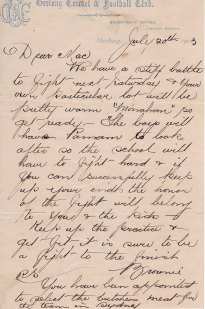 Geelong Cricket & Football Club.
Geelong, July 20th 1903
Dear Mac
We have a stiff battle
to fight next Saturday & your
own particular lot will be
pretty warm "Monohan" so
get ready — The boys will
have Pirman to look
after so the school will
have to fight - hard & if
you can successfully keep
up your end the honor
of the fight will belong
to you & the kids -
Keep up the practice &
get fit, it is sure to be
a fight to the finish
Brownie
P.S.
You have been appointed
to select the butchers meat for
the team in